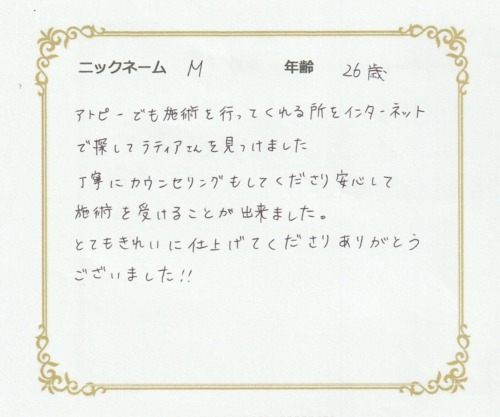 ニックネーム M 年齢 26歳
アトピーでも施術を行ってくれる所をインターネット
で探してラティアさんを見つけました
丁寧にカウンセリングもしてくださり安心して
施術を受けることが出来ました。
とてもきれいに仕上げてくださりありがとう
ございました!!